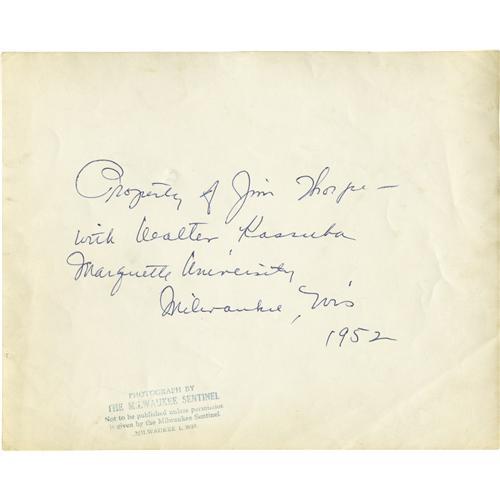 Property of Jim Thorpe —
with Walter Kassuba
Marquette University
Milwaukee, Wis
1952
PHOTOGRAPH BY
THE MILWAUKEE SENTINEL
Not to be published unless permission
is given by the Milwaukee Sentinel
MILWAUKEE 1, WIS.